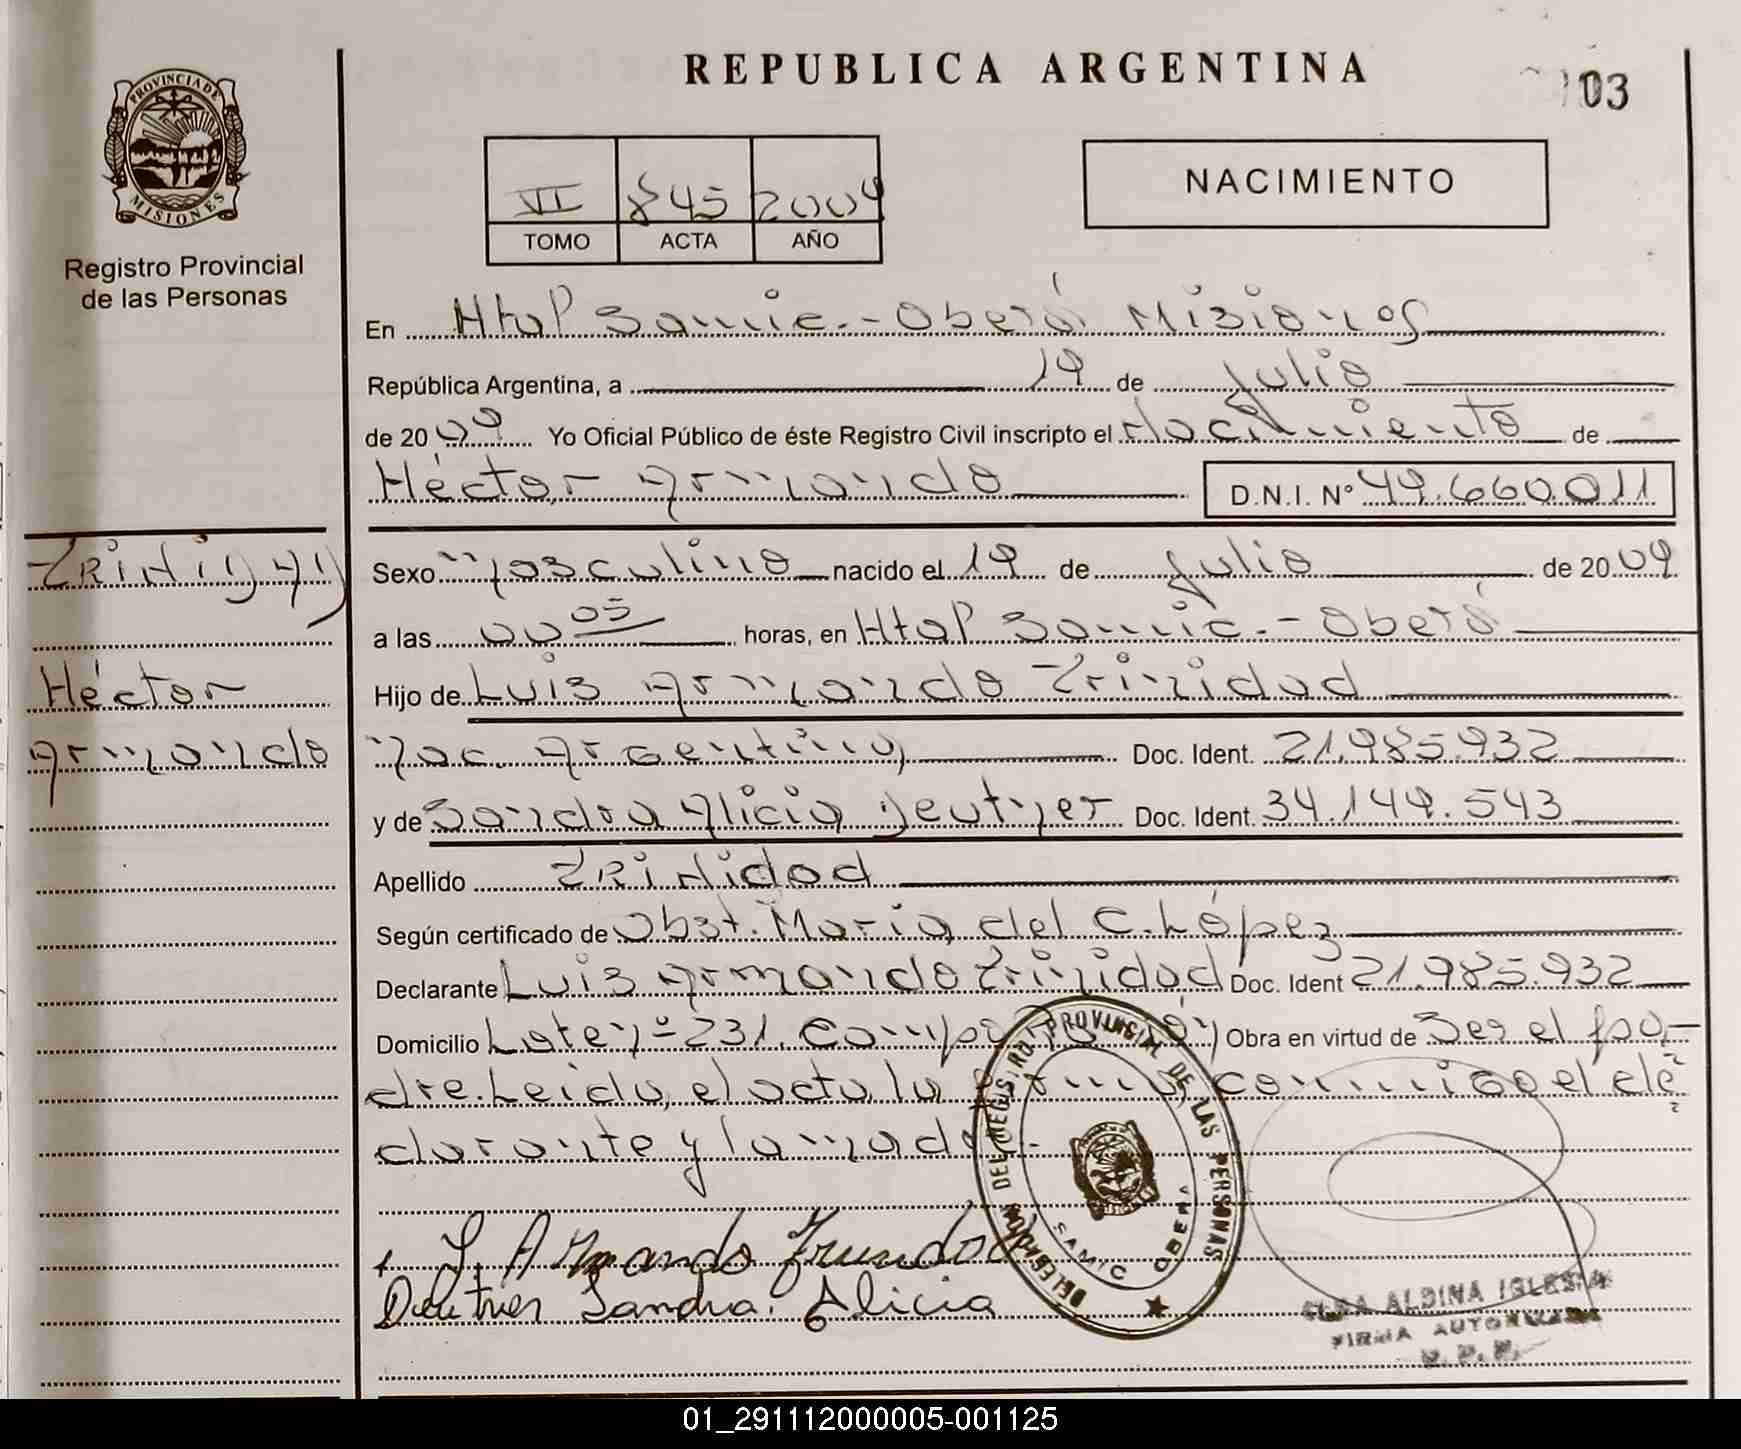 REPUBLICA ARGENTINA
03
PROVINCIA DE
MISIONES
Registro Provincial
de las Personas
VI 845 2009
TOMO ACTA AÑO
NACIMIENTO
En Htal Samic.- Oberá Misiones
República Argentina, a 19 de Julio
de 2009 Yo Oficial Público de éste Registro Civil inscripto el Nacimiento de
Héctor Armando D.N.I. Nº 49.660.011
TRINIDAD
Héctor
Armando
Sexo Masculino nacido el 19 de Julio de 2009
a las 00 05 horas, en Htal Samic.- Oberá
Hijo de Luis Armando Trinidad
Nac. Argentina Doc. Ident. 21.985.932
y de Sandra Alicia Doc. Ident. 34.149.543
Apellido TRINIDAD
Según certificado de Obst. María del C. López
Declarante Luis Armando Trinidad Doc. Ident 21.985.932
Domicilio Lote Nº 231. Campo Obra en virtud de Ser el pa-
dre. Leída el acta la conmigo el de
clarante y la madre.
L. Armando
Sandra Alicia
DELEGACION DEL REGISTRO PROVINCIAL DE LAS PERSONAS
SAMIC OBERA
ALDINA IGLESIA
FIRMA AUTORIZADA
R. P. P.
01_291112000005-001125